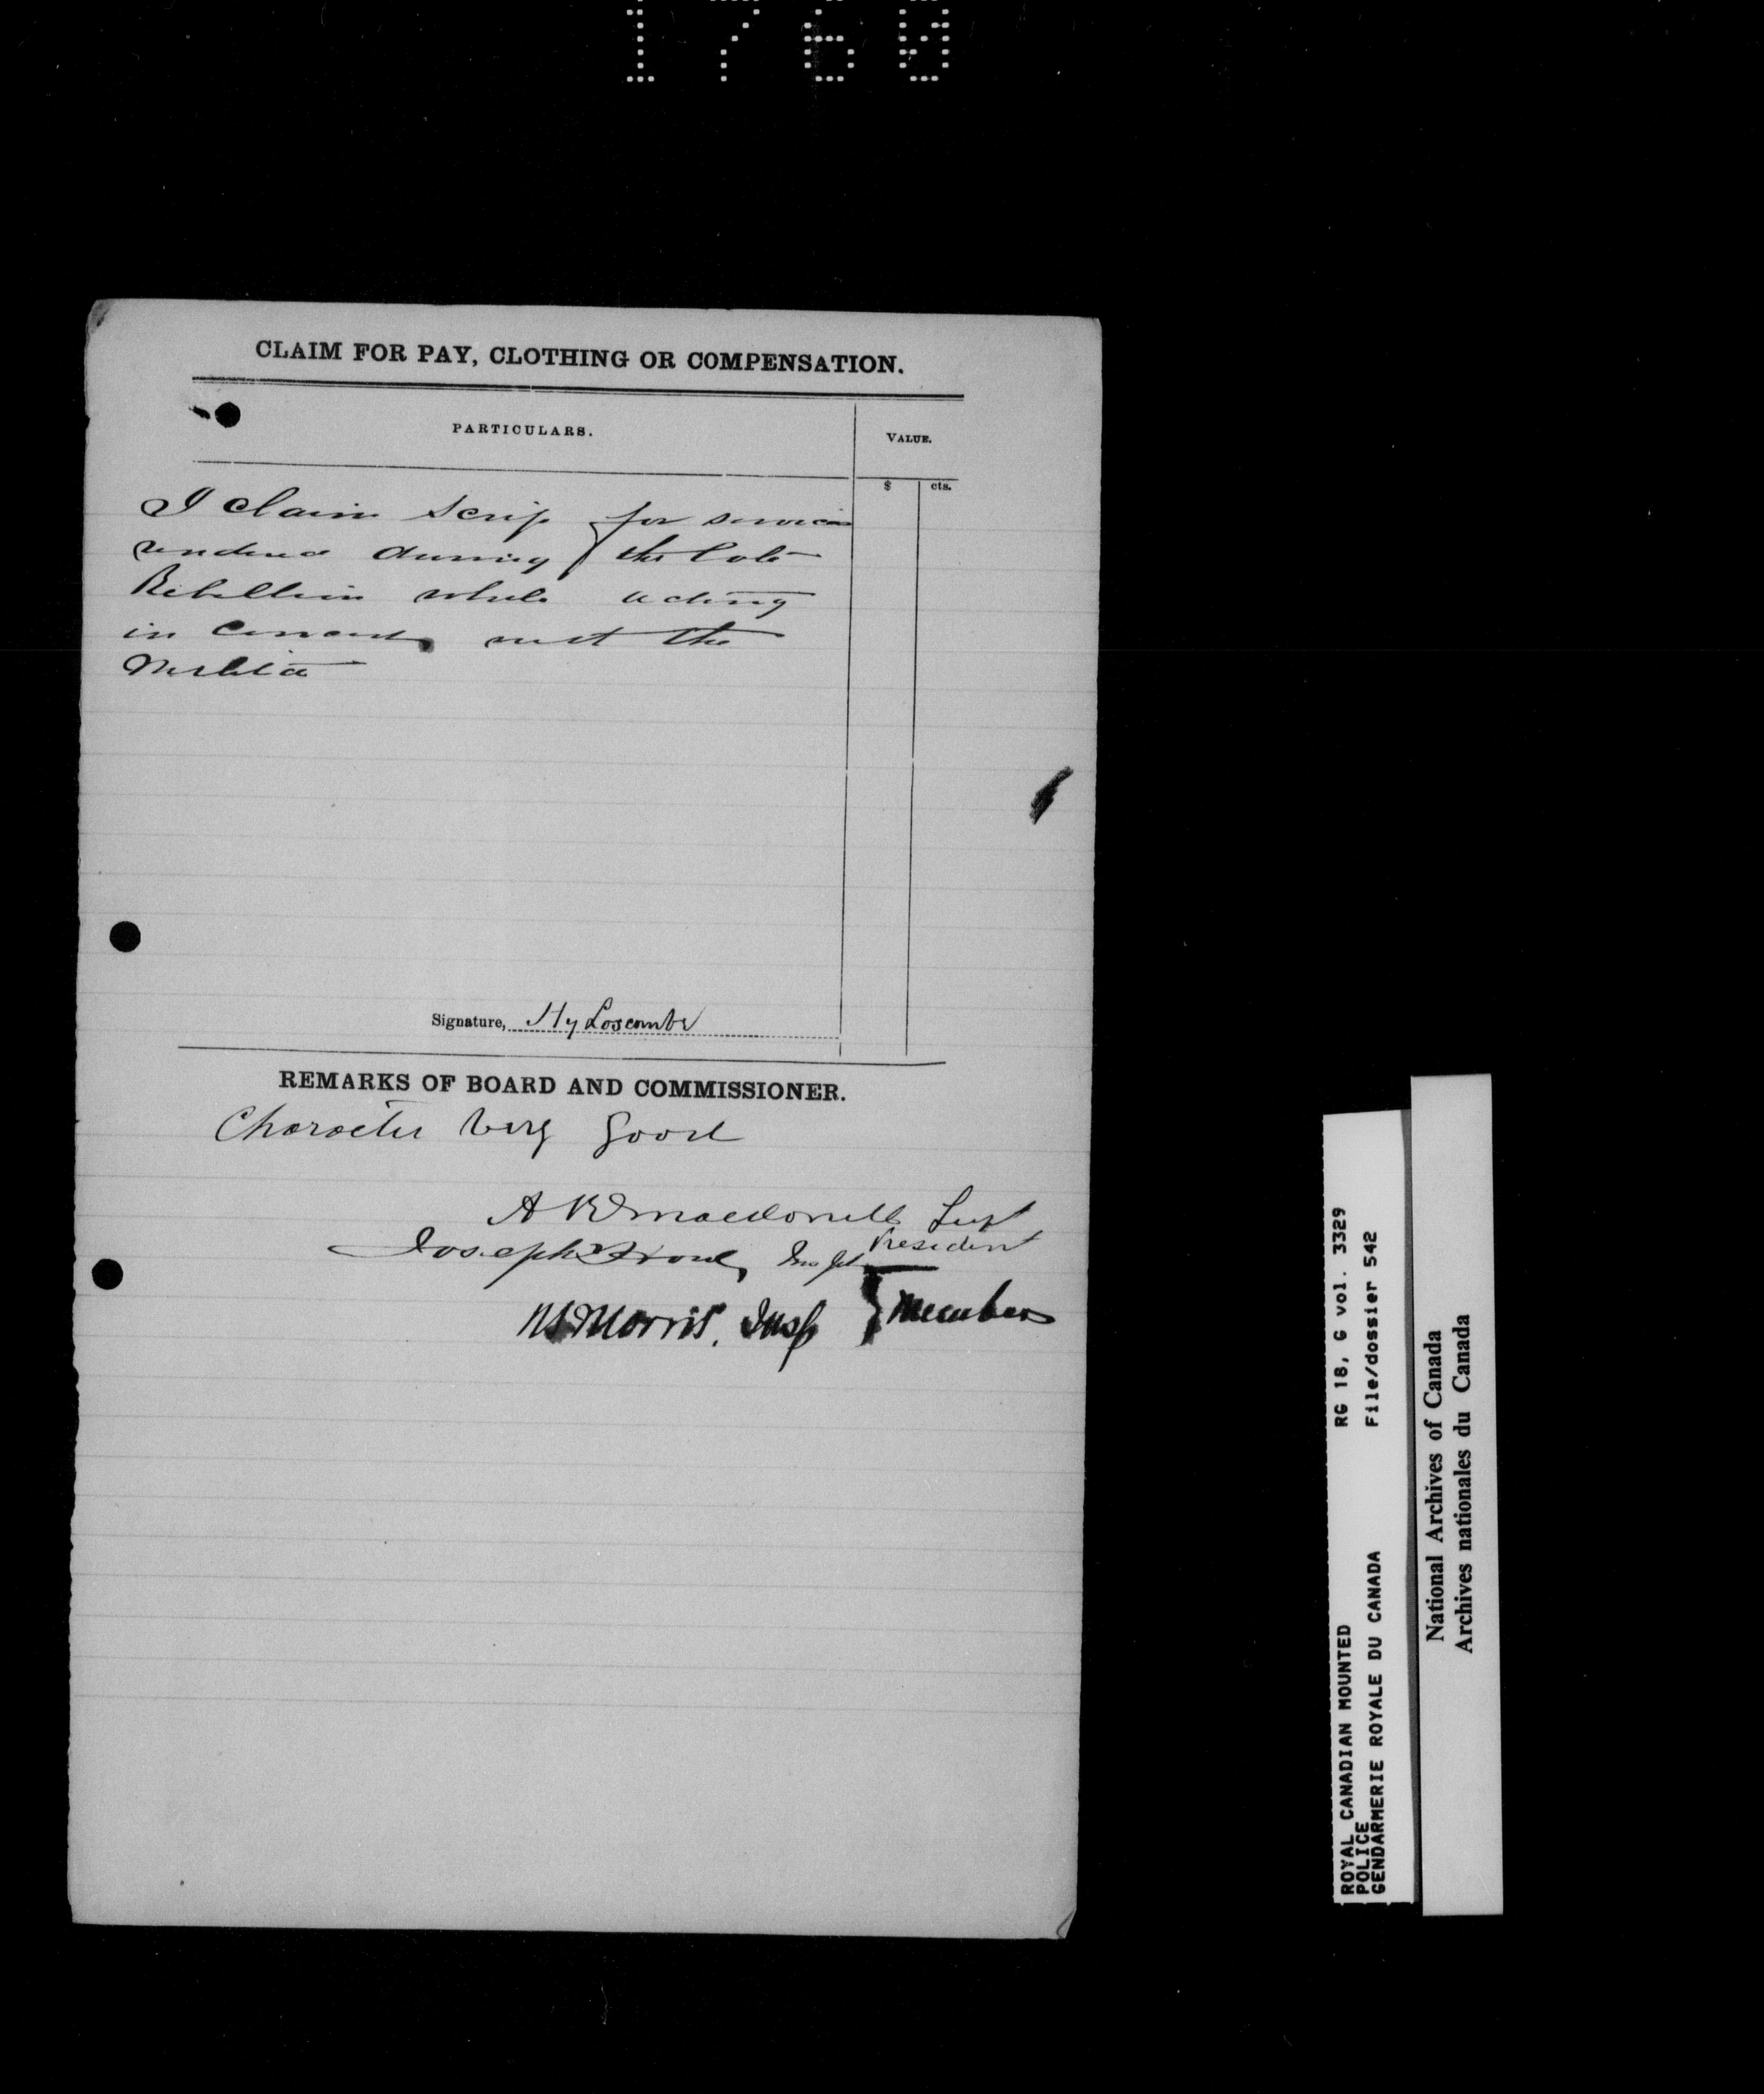 1760
CLAIM FOR PAY, CLOTHING OR COMPENSATION.
PARTICULARS.
VALUE.
$ cts.
I claim Scrip for services
rendered during the late
Rebellion while acting
in concert with the
Militia
Signature, Hy Loscombe
REMARKS OF BOARD AND COMMISSIONER.
Character very good
A R Macdonell Supt
President
Joseph Howe, Inspt
Morris. Insp } Members
ROYAL CANADIAN MOUNTED
POLICE
GENDARMERIE ROYALE DU CANADA
RG 18, G vol. 3329
File/dossier 542
National Archives of Canada
Archives nationales du Canada